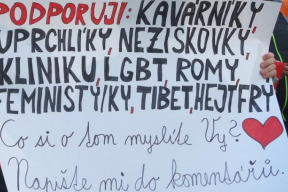 PODPORUJI: KAVÁRNÍKY,
UPRCHLÍKY, NEZISKOVKY,
KLINIKU, LGBT, ROMY,
FEMINISTY/KY, TIBET, HEJTFRÝ
Co si o tom myslíte Vy?
Napište mi do komentářů.